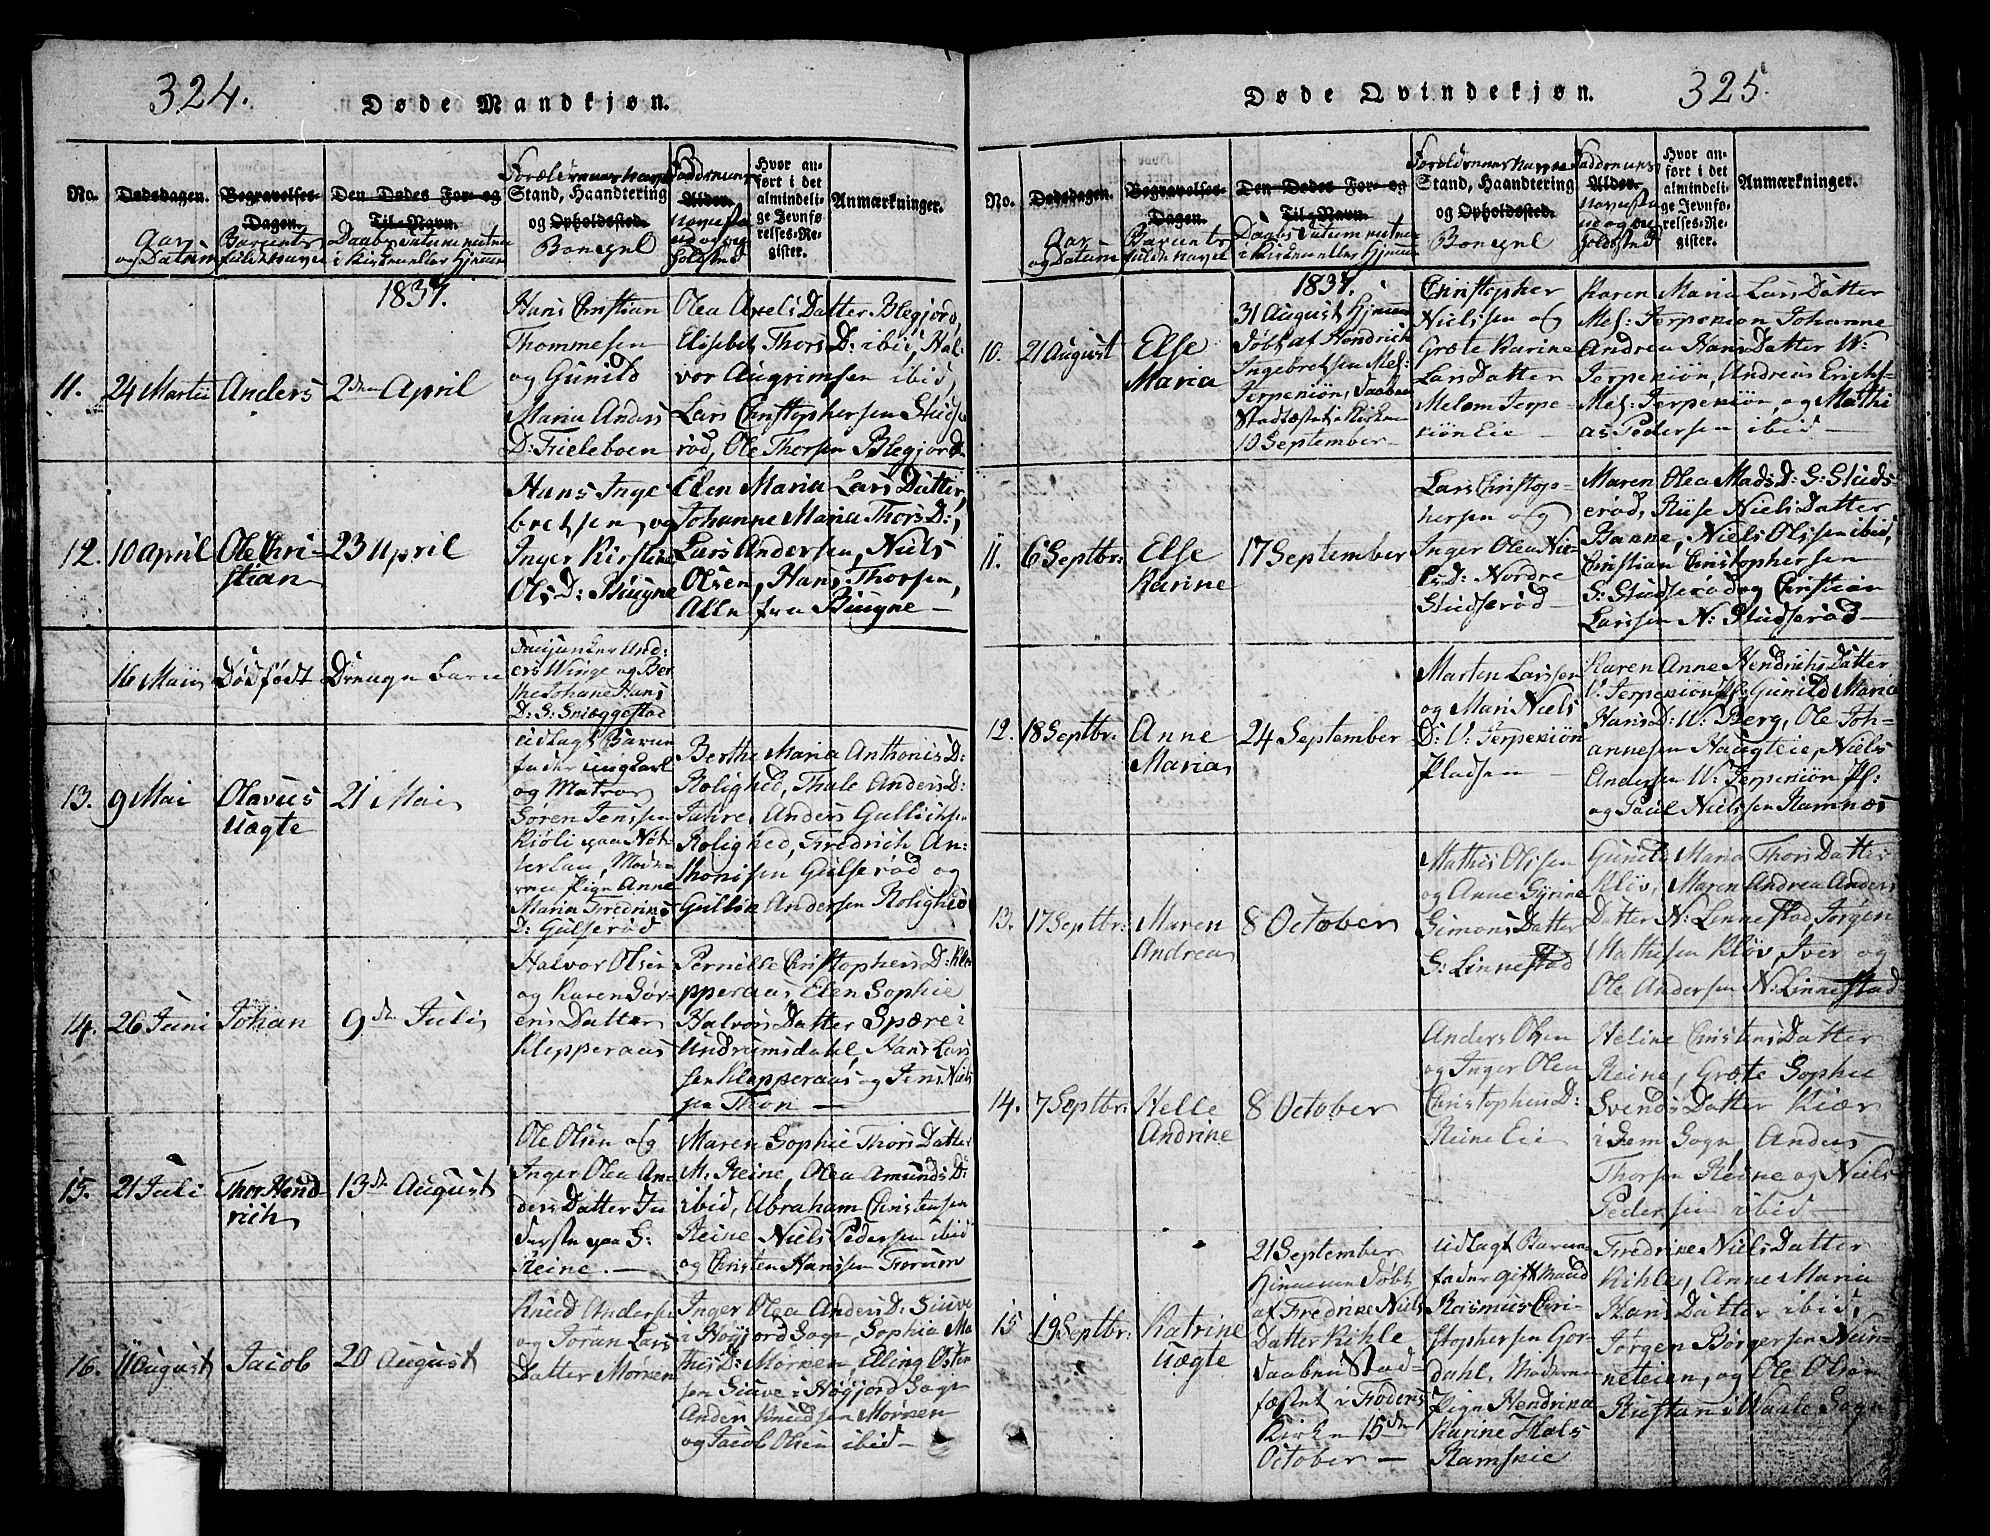 324.
Døde Mandkjøn.
No.
Dødsdagen.
Aar
og Datum
Begravelses-
Dagen.
Barnets
fulde Navn
Den Dødes For- og
Til-Navn.
Daabs datum enten
i Kirken eller Hjemme
Forældrenes Navne
Stand, Haandtering
og Opholdsted.
Boepæl
Faddernes
Alder.
Navne
og Op
holdsted
Hvor an-
ført i det
almindeli-
ge Jevnfø-
relses-Re-
gister.
Anmærkninger.
1837.
11.
24 Martii
Anders
2den April
Hans Christian
Thommesen
og Gunild
Maria Anders
D: Frieleboen
Olea Axels Datter Blegjord,
Elisebet Thors D: ibid, Hal-
vor Augrimsen ibid,
Lars Christophersen Studse
rød, Ole Thorsen Blegjord
12.
10 April
Ole Chri-
stian
23 April
Hans Inge
bretsen og
Inger Kirstine
Ols D: Biugne
Elen Maria Lars Datter,
Johanne Maria Thors D:,
Lars Andersen, Niels
Olsen, Hans Thorsen,
Alle fra Biugne
16 Mai
Dødfødt
Drenge Barn
And-
ers Winge og Ber
the Johane Hans
D: S: Snæggestad
13.
9 Mai
Olavus
Uægte
21 Mai
Udlagt Barne
fader ungkarl
og Matros
Søren Jenssen
Kiøli paa Nøt-
terlau, Mode-
ren Pige Anne
Maria Fredriks
D: Gulserød
Berthe Maria Anthonis D:
Rolighed, Thale Anders D:
Jahre, Anders Gullichsen
Rolighed, Fredrich An-
thonisen Gulserød og
Gullik Andersen Rolighed
14.
26 Juni
Johan
9de Juli
Halvor Olsen
og Karen Sør-
ens Datter
Klepperaas
Pernille Christophers D: Kle
pperaas, Elen Sophie
Halvors Datter Spære i
Undrumsdahl, Hans Lars
sen Klepperaas og Jens Niels
sen Thon
15.
21 Juli
Thor Hend-
rich
13de August
Ole Olsen og
Inger Olea An-
ders Datter In
derste paa S:
Reine.
Maren Sophie Thors Datter
M. Reine, Olea Amunds D:
ibid, Abraham Christensen
Reine Niels Pedersen ibid
og Christen Hanssen Forum
16.
11 August
Jacob
20 August
Knud Andersen
og Joran Lars
Datter Mørken
Inger Olea Anders D: Siuve
i Høyjord Sogn, Sophia Ma
this D: Mørken, Elling Osten
sen Siuve i Høyjord Sogn
Anders Knudsen Mørken
og Jacob Olsen ibid
Døde Qvindekjøn.
325.
No.
Dødsdagen.
Aar
og Datum
Begravelses-
Dagen.
Barnets
fulde Navn
Den Dødes For- og
Til-Navn.
Daabs Datum enten
i Kirken eller Hjemme
Forældrenes Navne
Stand, Haandtering
og Opholdsted.
Boepæl
Faddernes
Alder.
Navne
og Op
holdsted
Hvor an-
ført i det
almindeli-
ge Jevnfø-
relses-Re-
gister.
Anmærkninger.
1837.
10.
21 August
Else
Maria
31 August Hjemme
døbt af Hendrich
Ingebretsen Mel:
Jerpekiøn, Daaben
Stadfæstet i Kirken
10 September
Christopher
Nielssen og
Grete Karine
Lars Datter
Melom Jerpe-
kiøn Eie
Karen Maria Lars Datter
Mel: Jerpekiøn Johanne
Andrea Hans Datter W:
Jerpekiøn, Andreas Erichs-
Mel: Jerpekiøn, og Mathi
as Pedersen ibid
11.
6 Septbr:
Else
Karine
17 September
Lars Christop-
hersen og
Inger Olea Nie-
ls D: Nordre
Studserød
Maren Olea Mads D: S: Studs-
erød, Riise Niels Datter
Banne, Niels Olssen ibid,
Christian Christophersen
S: Studserød og Christian
Larssen N: Studserød
12.
18 Septbr:
Anne
Maria
24 September
Marten Larssen
og Mari Niels
D: V: Jerpekiøn
Pladsen
Karen Anne Hendrichs Datter
V: Jerpekiøn Pl: Gunild Maria
Hans D: W: Berg, Ole Joh-
annesen Haugteie, Niels
Andersen W: Jerpekiøn Pl:
og Paul Nielssen Ramnæs
13.
17 Septbr:
Maren
Andrea
8 October
Mathis Olssen
og Anne Gurine
Simons Datter
S: Linnestad
Gunild Maria Thors Datter
Kløv, Maren Andrea Anders
Datter N: Linnestad, Jørgen
Mathisen Kløv, Iver og
Ole Andersen N: Linnestad
14.
7 Septbr:
Helle
Andrine
8 October
Anders Olsen
og Inger Olea
Christophers D:
Reine Eie
Heline Christens Datter
Reine, Grete Sophie
Svends Datter Kiær
i Sem Sogn, Anders
Thorsen Reine og Niels
Pedersen ibid
15
19 Septbr:
Katrine
Uægte
21 September
Hjemme Døbt
af Fredrike Niels
Datter Kihle
Daaben Stad-
fæstet i Fodens
Kirke 15de
October
Udlagt Barne-
fader gift Mand
Rasmus Chri-
stophersen Gor-
dahl. Moderen
Pige Hendrikke
Karine Thols
Ramskie
Fredrike Niels Datter
Kihle, Anne Maria
Hans Datter ibid,
Jørgen Børgersen Nun-
neteien, og Ole Olsen
Rustan i Waale Sogn